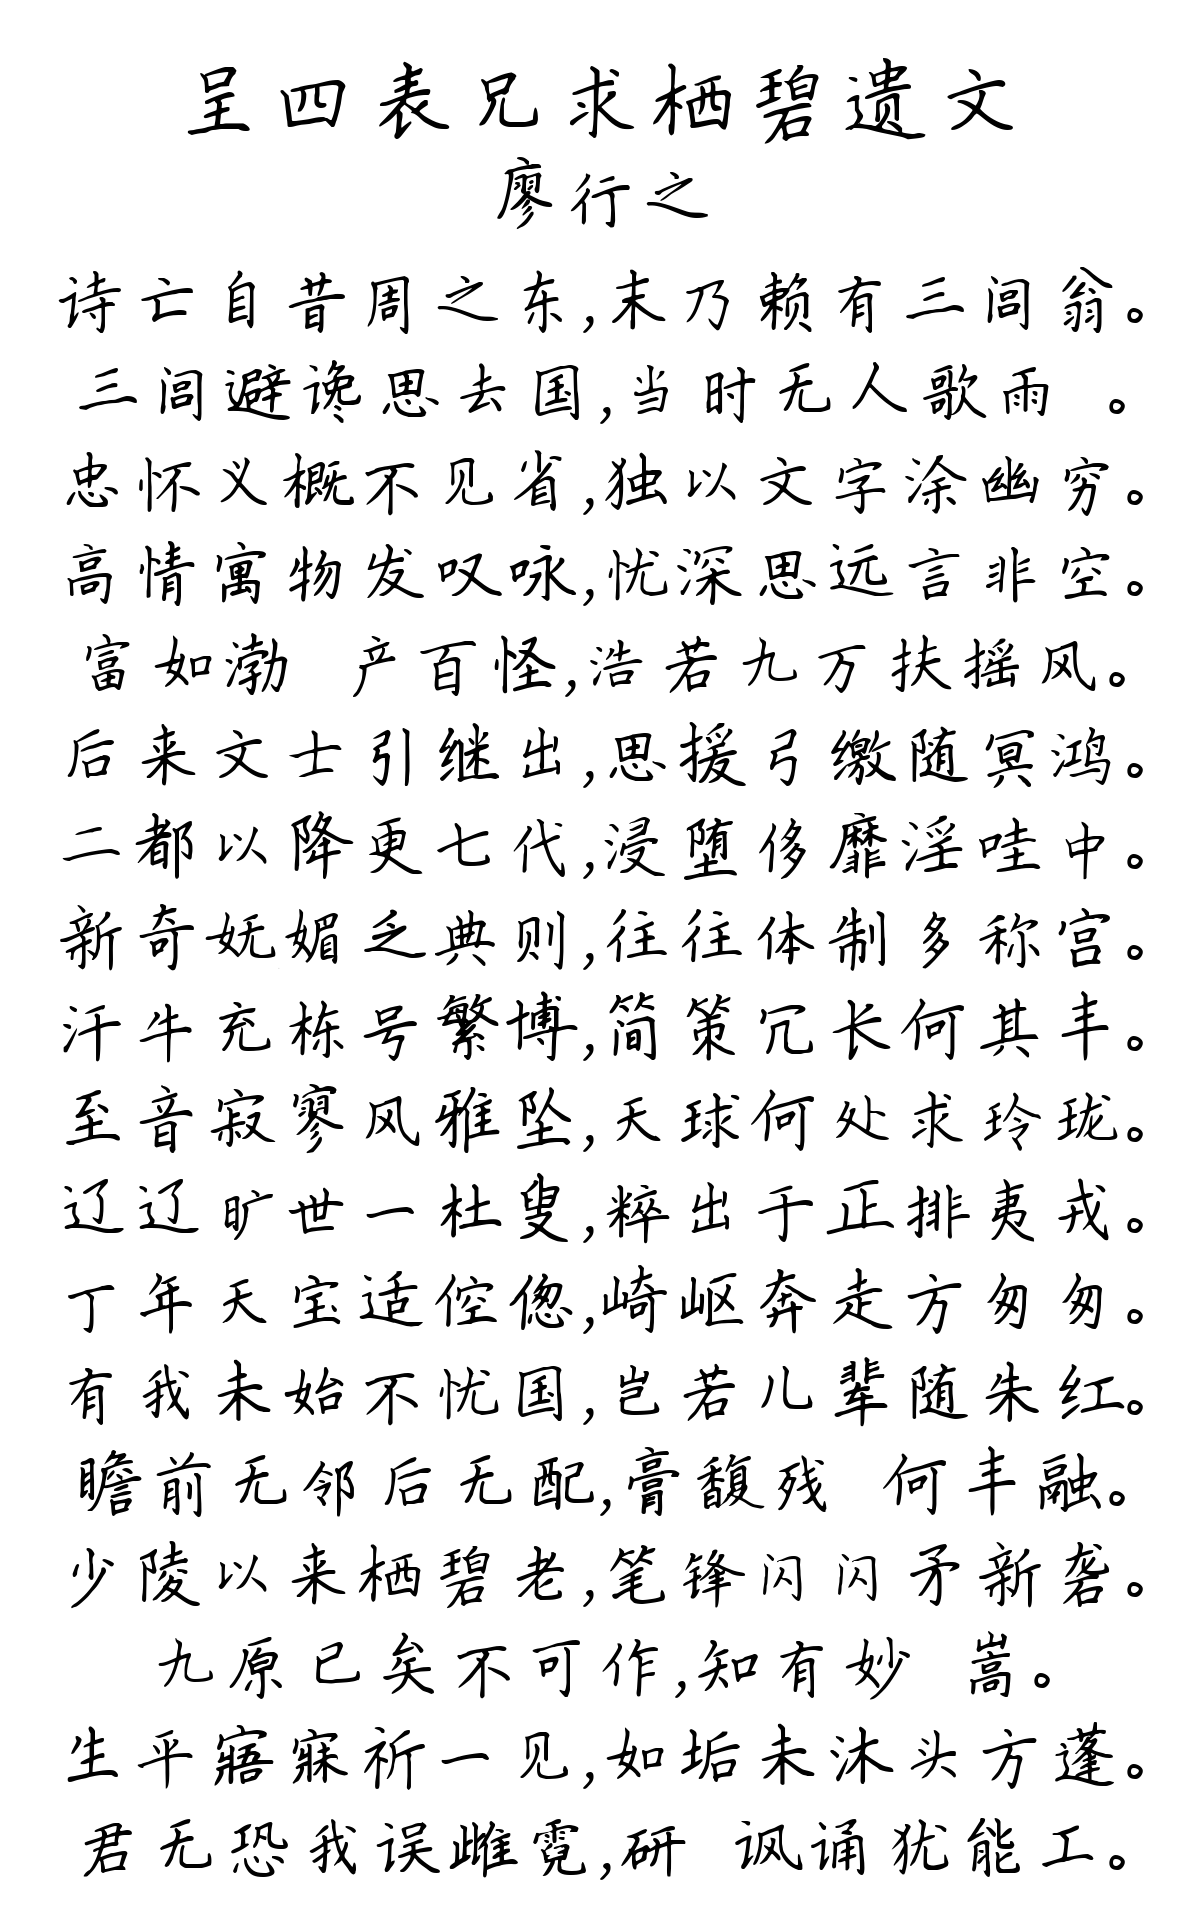 呈四表兄求栖碧遗文
廖行之
诗亡自昔周之东,末乃赖有三闾翁。
三闾避谗思去国,当时无人歌雨 。
忠怀义概不见省,独以文字涂幽穷。
高情寓物发叹咏,忧深思远言非空。
富如渤 产百怪,浩若九万扶摇风。
后来文士引继出,思援弓缴随冥鸿。
二都以降更七代,浸堕侈靡淫哇中。
新奇妩媚乏典则,往往体制多称宫。
汗牛充栋号繁博,简策冗长何其丰。
至音寂寥风雅坠,天球何处求玲珑。
辽辽旷世一杜叟,粹出于正排夷戎。
丁年天宝适倥偬,崎岖奔走方匆匆。
有我未始不忧国,岂若儿辈随朱红。
瞻前无邻后无配,膏馥残 何丰融。
少陵以来栖碧老,笔锋闪闪矛新砻。
九原已矣不可作,知有妙 嵩。
生平寤寐祈一见,如垢未沐头方蓬。
君无恐我误雌霓,研 讽诵犹能工。